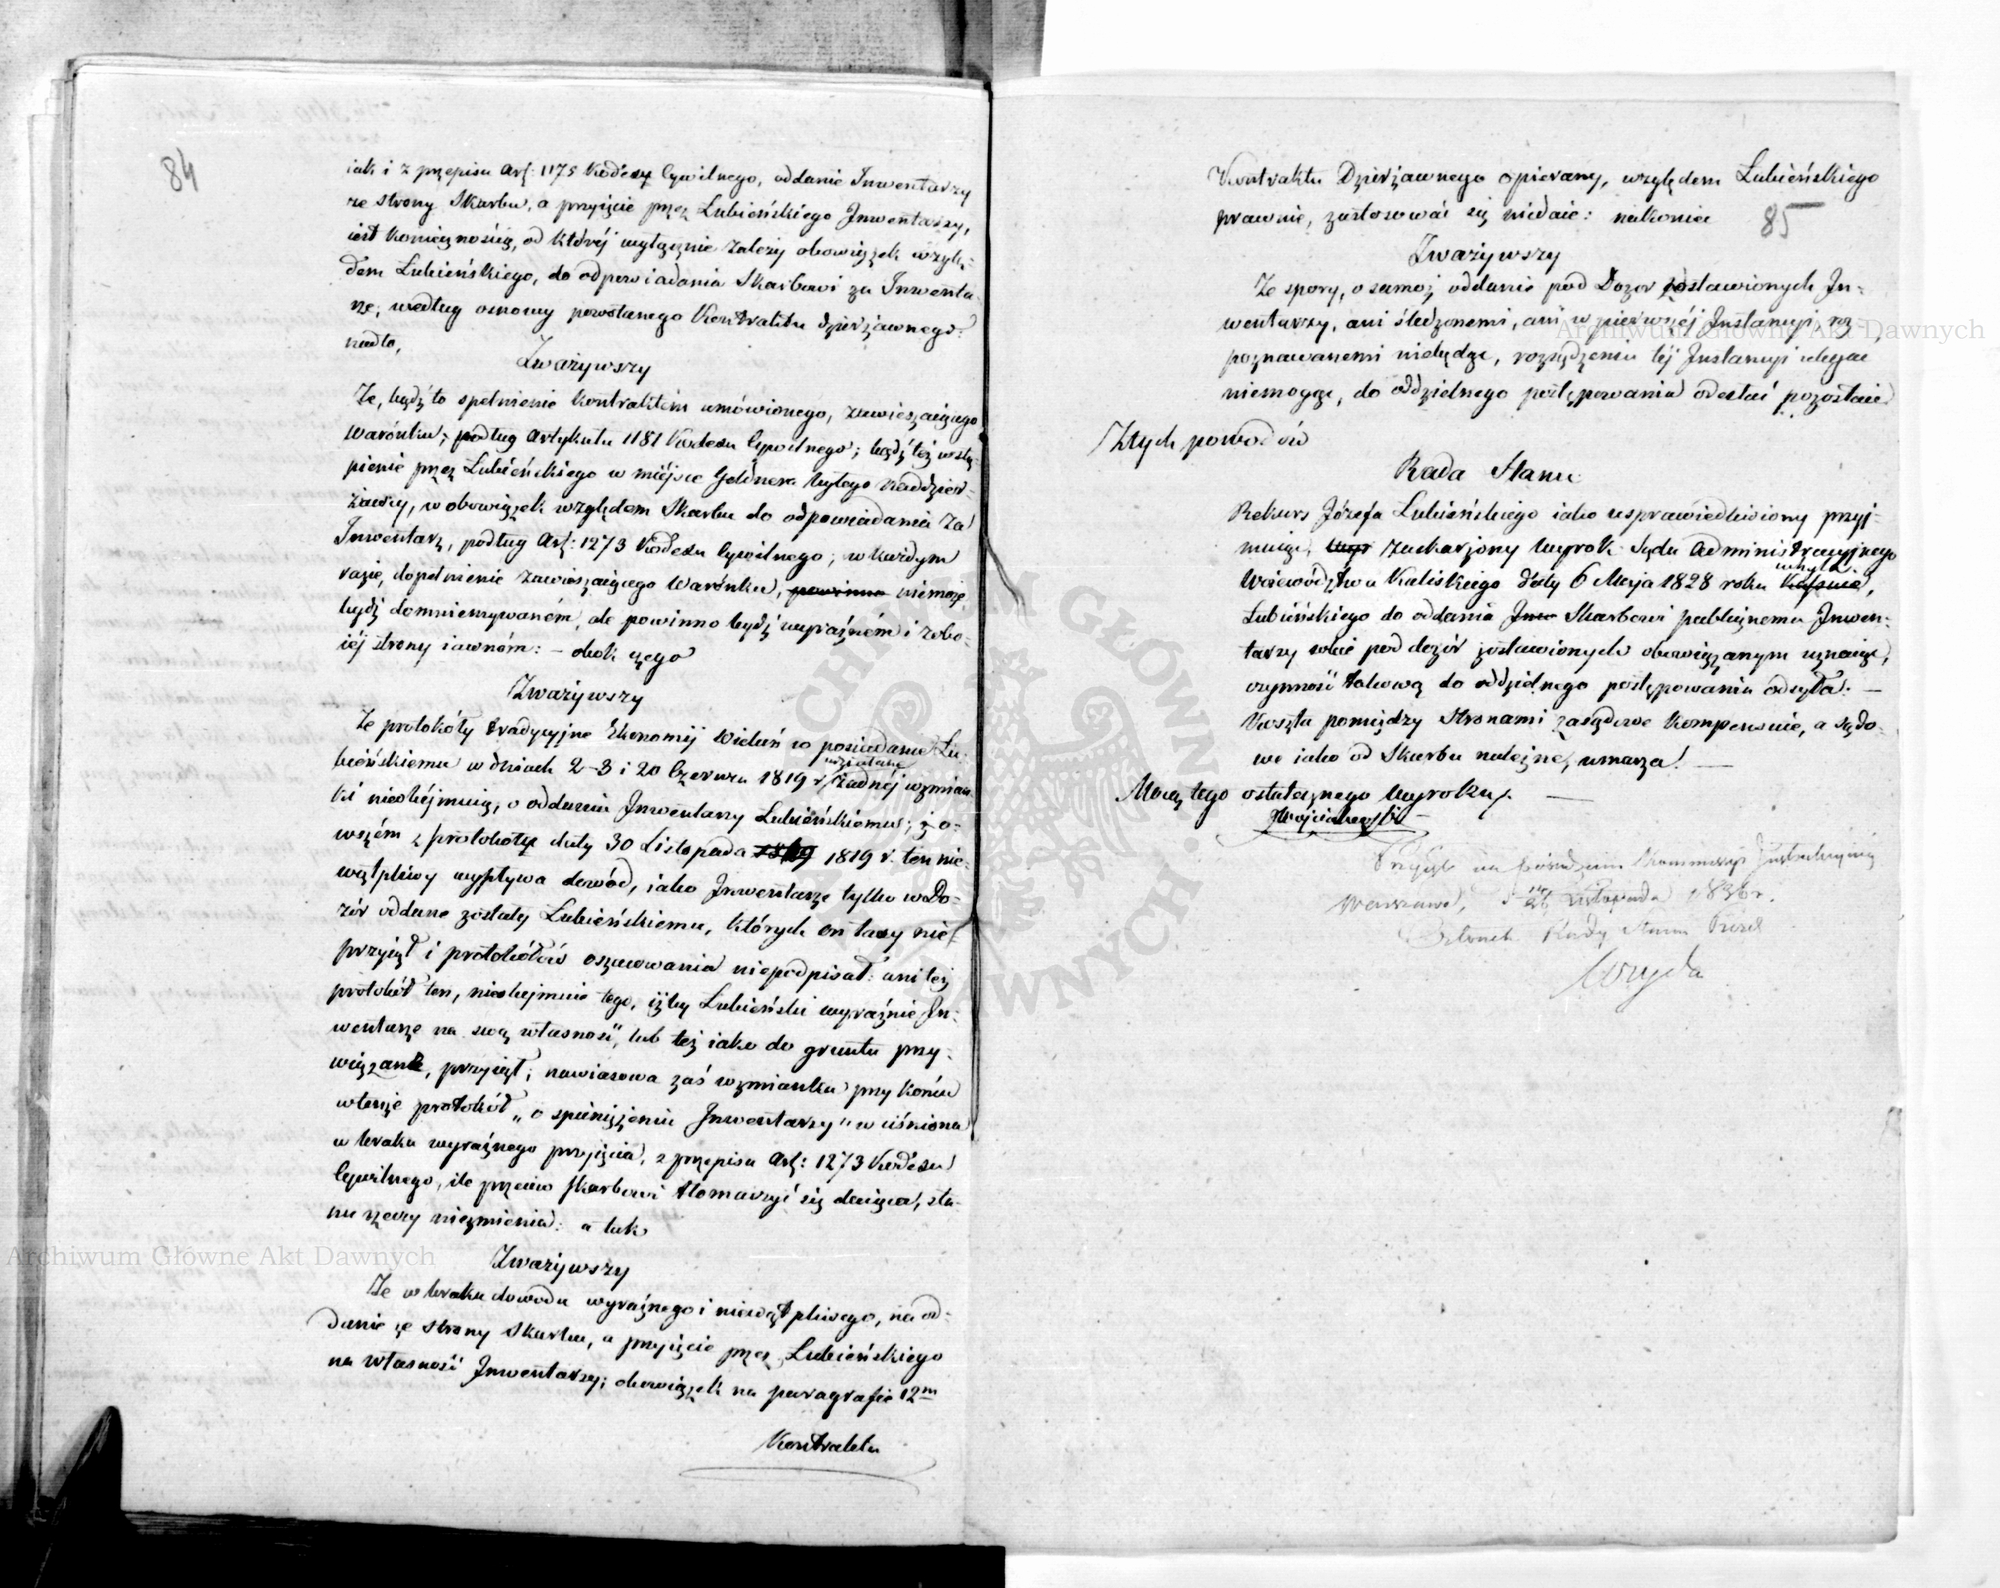 84
iak i z przepisu Art: 1175 Kodexu Cywilnego, oddanie Inwentarzy
ze strony Skarbu, a przyięcie przez Lubieńskiego Inwentarzy,
iest koniecznością, od któréj wyłącznie zależy obowiązek wzglę-
dem Lubieńskiego, do odpowiadania Skarbowi za Inwenta-
rze, według osnowy powołanego Kontraktu dzierżawnego:
nadto,
Zważywszy
Że, bądź to spełnienie kontraktem umówionego, zawieszaiącego
warónku, podług artykułu 1181 Kodexu Cywilnego; bądź też wstą-
pienie przez Lubieńskiego w miéjsce Goldnera byłego Naddzier-
żawcy, w obowiązek względem Skarbu do odpowiadania za
Inwentarz, podług Art: 1273 Kodexu Cywilnego; w każdym
razie, dopełnienie zawieszaiącego warónku, powinno niemoże
bydź domniemywaném, ale powinno bydź wyraźném i z obo-
iéj strony iawném: – obok czego
Zważywszy
Że protokóły tradycyjne Ekonomij Wieluń w posiadanie Lu-
bieńskiemu w dniach 2–3 i 20 Czerwca 1819 r. udziałane żadnéj wzmian-
ki nieobéjmuią, o oddaniu Inwentarzy Lubieńskiemu; i o-
wszém z protokołu daty 30 Listopada 1819 1819 r. ten nie-
wątpliwy wypływa dowód, iako Inwentarze tylko w Do-
zór oddane zostały Lubieńskiemu, których on taxy nie-
przyiął i protokółów oszacowania niepodpisał: ani też
protokół ten, nieobejmuie tego, iżby Lubieński wyraźnie In-
wentarze na swą własność, lub też iako do gruntu przy-
wiązane, przyiął; nawiasowa zaś wzmianka przy końcu
w tenże protokół „o spieniężeniu Inwentarzy" wciśniona
w braku wyraźnego przyięcia, z przepisu Art: 1273 Kodexu
Cywilnego, ile przeciw Skarbowi tłomaczyć się daiąca, sta-
nu rzeczy niezmienia: a tak
Zważywszy
Że w braku dowodu wyraźnego i niewątpliwego, na od-
danie ze strony Skarbu, a przyięcie przez Lubieńskiego
na własność Inwentarzy; obowiązek na paragrafie 12m
Kontraktu
Kontraktu Dzierżawnego opierany, względem Lubieńskiego
prawnie, zastosować się niedaie: nakoniec
85
Zważywszy
Że spory, o samoż oddanie pod Dozor zostawionych In-
wentarzy, ani śledzonemi, ani w pierwszéj Instancyi roz-
poznawanemi niebędąc, rozsądzeniu téj Instancyi ulegać
niemogąc, do oddzielnego postępowania odesłać pozostaie.
Z tych powodów
Rada Stanu
Rekurs Józefa Lubieńskiego iako usprawiedliwiony przyj-
muiąc, zaskarżony wyrok Sądu Administracyjnego
Województwa Kaliskiego daty 6 Maja 1828 roku uchyla,
Lubieńskiego do oddania Inw Skarbowi publicznemu Inwen-
tarzy sobie pod dozór zostawionych obowiązanym uznaiąc,
czynność takową do oddzielnego postępowania odsyła: –
Koszta pomiędzy Stronami zasądowe kompensuie, a sądo-
we iako od Skarbu należne, umarza! –
Mocą tego ostatecznego Wyroku. –
JWojciechowski
Przyięto na Posiedzeniu Kommissyi Instrukcyjnéj
Warszawa, d. Listopada 1836 r.
Członek Rady Stanu Prez.
Woyda
Archiwum Główne Akt Dawnych
Archiwum Główne Akt Dawnych